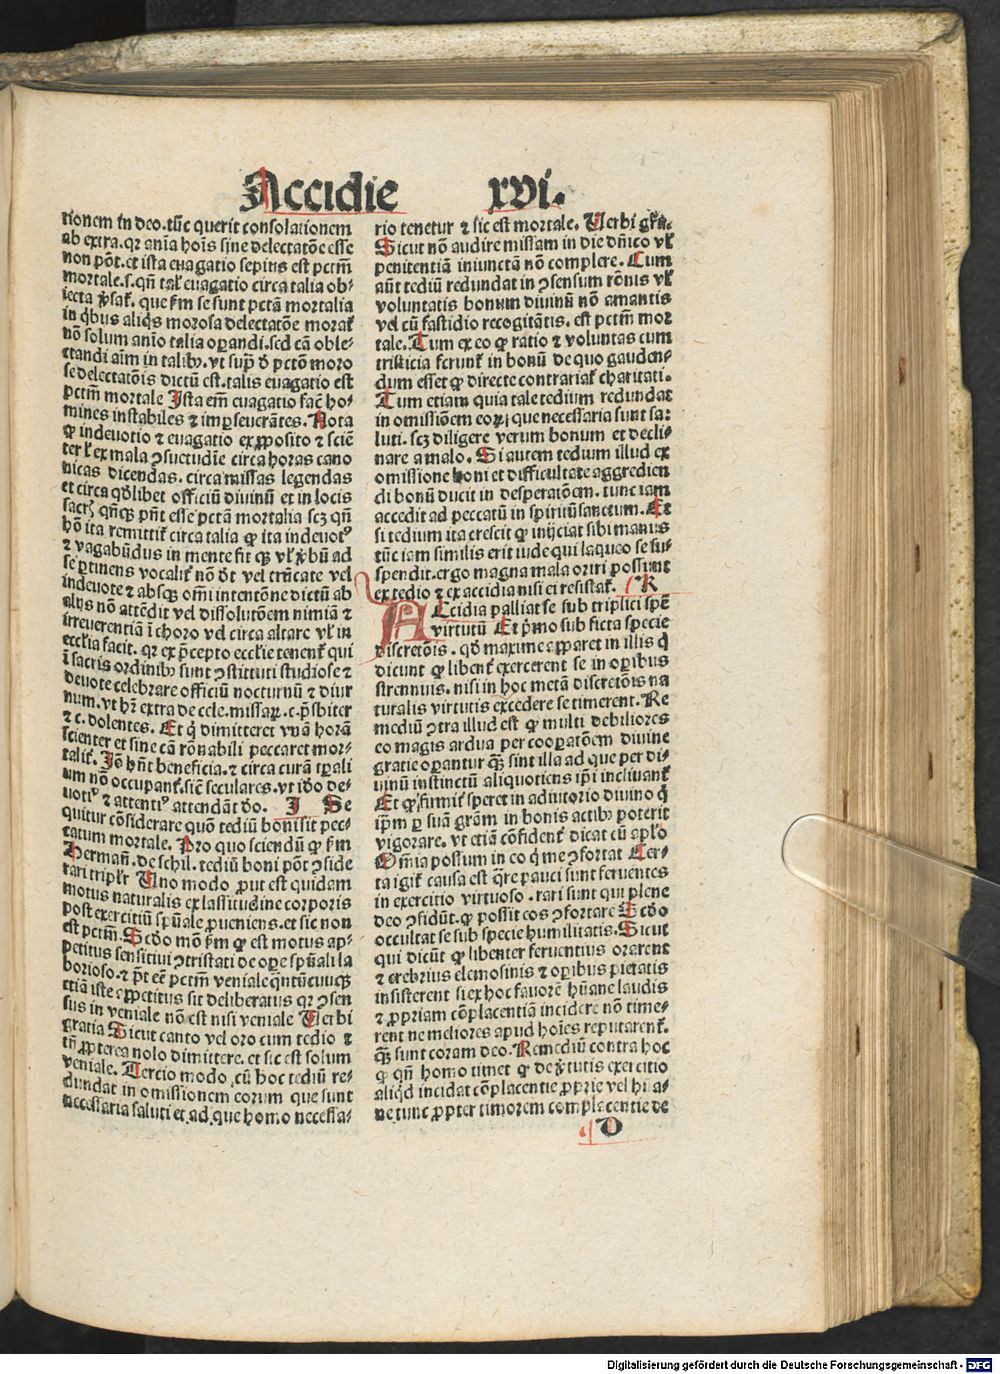 Accidie xvi.
tionem in deo. tūc querit consolationem
ab extra. qꝛ aīa hoīs sine delectatōe esse
non pōt. et ista euagatio sepius est pctm̄
mortale. s. qn̄ tal' euagatio circa talia ob-
iecta ꝟsat̄. que fm̄ se sunt pctā mortalia
in q̄bus aliq̄s morosa delectatōe morat̄
nō solum aīo talia oꝑandi. sed cā oble-
ctandi aīm in talibꝰ. vt supꝰ ð pctō moro
se delectatōis dictū est. talis euagatio est
pctm̄ mortale Ista em̄ euagatio fac̄ ho-
mines instabiles ⁊ imꝑseuerātes. Nota
ꝙ indeuotio ⁊ euagatio ex ꝓposito ⁊ sciē
ter l' ex mala ꝯsuetudīe circa horas cano
nicas dicendas. circa missas legendas
et circa qd̄libet officiū diuinū et in locis
sacrꝭ qn̄qꝫ pn̄t esse pctā mortalia scꝫ qn̄
hō ita remittit̄ circa talia ꝙ ita indeuotꝰ
⁊ vagabūdus in mente sit ꝙ vl' ꝟbū ad
se ꝑtinens vocalit̄ nō ðt vel trūcate vel
indeuote ⁊ absqꝫ om̄i intentōne dictū ab
alijs nō attēdit vel dissolutōem nimiā ⁊
irreuerentiā ī choro vel circa altare vl' in
eccl'ia facit. qꝛ ex p̄cepto eccl'ie tenent̄ qui
ī sacris ordinibꝰ sunt ꝯstituti studiose ⁊
deuote celebrare officiū nocturnū ⁊ diur
num. vt hꝛ̄ extra de cele. missaꝝ. c. p̄sbiter
⁊ c. dolentes. Et q̄ dimitteret vnā horā
scienter et sine cā rōnabili peccaret mor-
talit̄. Iō hn̄t beneficia. ⁊ circa curā tꝑali
um nō occupant̄. sic̄ seculares. vt id̄o de-
uotiꝰ ⁊ attentiꝰ attendāt d̄o. I Se
quitur cōsiderare quō tediū boni sit pec-
catum mortale. Pro quo sciendū ꝙ fm̄
Herman̄. de schil. tediū boni pōt ꝯside
rari tripl'r Uno modo ꝓut est quidam
motus naturalis ex lassitudine corporis
post exercitiū spūale ꝓueniens. et sic non
est pctm̄. Scd̄o mō fm̄ ꝙ est motus ap-
petitus sensitiui ꝯtristati de oꝑe spūali la
borioso. ⁊ pōt eē pctm̄ veniale qn̄tūcūqꝫ
etiā iste appetitus sit deliberatus qꝛ ꝯsen
sus in veniale nō est nisi veniale Uerbi
gratia Sicut canto vel oro cum tedio ⁊
tn̄ ꝓpterea nolo dimittere. et sic est solum
veniale. Tercio modo. cū hoc tediū re-
dundat in omissionem eorum que sunt
necessaria saluti et ad que homo necessa-
rio tenetur ⁊ sic est mortale. Uerbi gr̄a.
Sicut nō audire missam in die dn̄ico vl'
penitentiā iniunctā nō complere. Cum
aūt tediū redundat in ꝯsensum rōnis vl'
voluntatis bonum diuinū nō amantis
vel cū fastidio recogitātis. est pctm̄ mor
tale. Tum ex eo ꝙ ratio ⁊ voluntas cum
tristicia ferunt̄ in bonū de quo gauden-
dum esset ꝙ directe contrariat̄ charitati.
Tum etiam quia tale tedium redundat
in omissiōem eoꝝ que necessaria sunt sa-
luti. scꝫ diligere verum bonum et decli-
nare a malo. Si autem tedium illud ex
omissione boni et difficultate aggredien
di bonū ducit in desperatōem. tunc iam
accedit ad peccatū in spiritū sanctum. Et
si tedium ita crescit ꝙ inijciat sibi manus
tūc iam similis erit iude qui laqueo se su-
spendit. ergo magna mala oriri possunt
ex tedio ⁊ ex accidia nisi ei resistat̄. K
ACcidia palliat se sub triplici spē
virtutū Et p̄mo sub ficta specie
discretōis. qd̄ maxime apparet in illis q̄
dicunt ꝙ libent̄ exercerent se in oꝑibus
strennuis. nisi in hoc metā discretōis na
turalis virtutis excedere se timerent. Re
mediū ꝯtra illud est ꝙ multi debiliores
eo magis ardua per cooꝑatōem diuine
gratie oꝑantur qꝫ sint illa ad que per di
uinū instinctū aliquotiens ip̄i inclinant̄
Et ꝙ firmit̄ speret in adiutorio diuino q̄
ip̄m ꝑ suā grām in bonis actibꝰ poterit
vigorare. vt etiā cōfident̄ dicat cū apl'o
Om̄ia possum in eo q̄ me ꝯfortat Cer-
ta igit̄ causa est q̄re pauci sunt feruentes
in exercitio virtuoso. rari sunt qui plene
deo ꝯfidūt. ꝙ possit eos ꝯfortare Scd̄o
occultat se sub specie humilitatis. Sicut
qui dicūt ꝙ libenter feruentius orarent
⁊ crebrius elemosinis ⁊ oꝑibus pietatis
insisterent si ex hoc fauorē hūane laudis
⁊ ꝓpriam cōplacentiā incidere nō time-
rent ne meliores apud hoīes reputarent̄.
qꝫ sunt coram deo. Remediū contra hoc
ꝙ qn̄ homo timet ꝙ de ꝟtutis exercitio
aliq̄d incidat cōplacentie ꝓprie vel hi a-
ne tunc ꝓpter timorem complacentie de
D
Digitalisierung gefördert durch die Deutsche Forschungsgemeinschaft - DFG